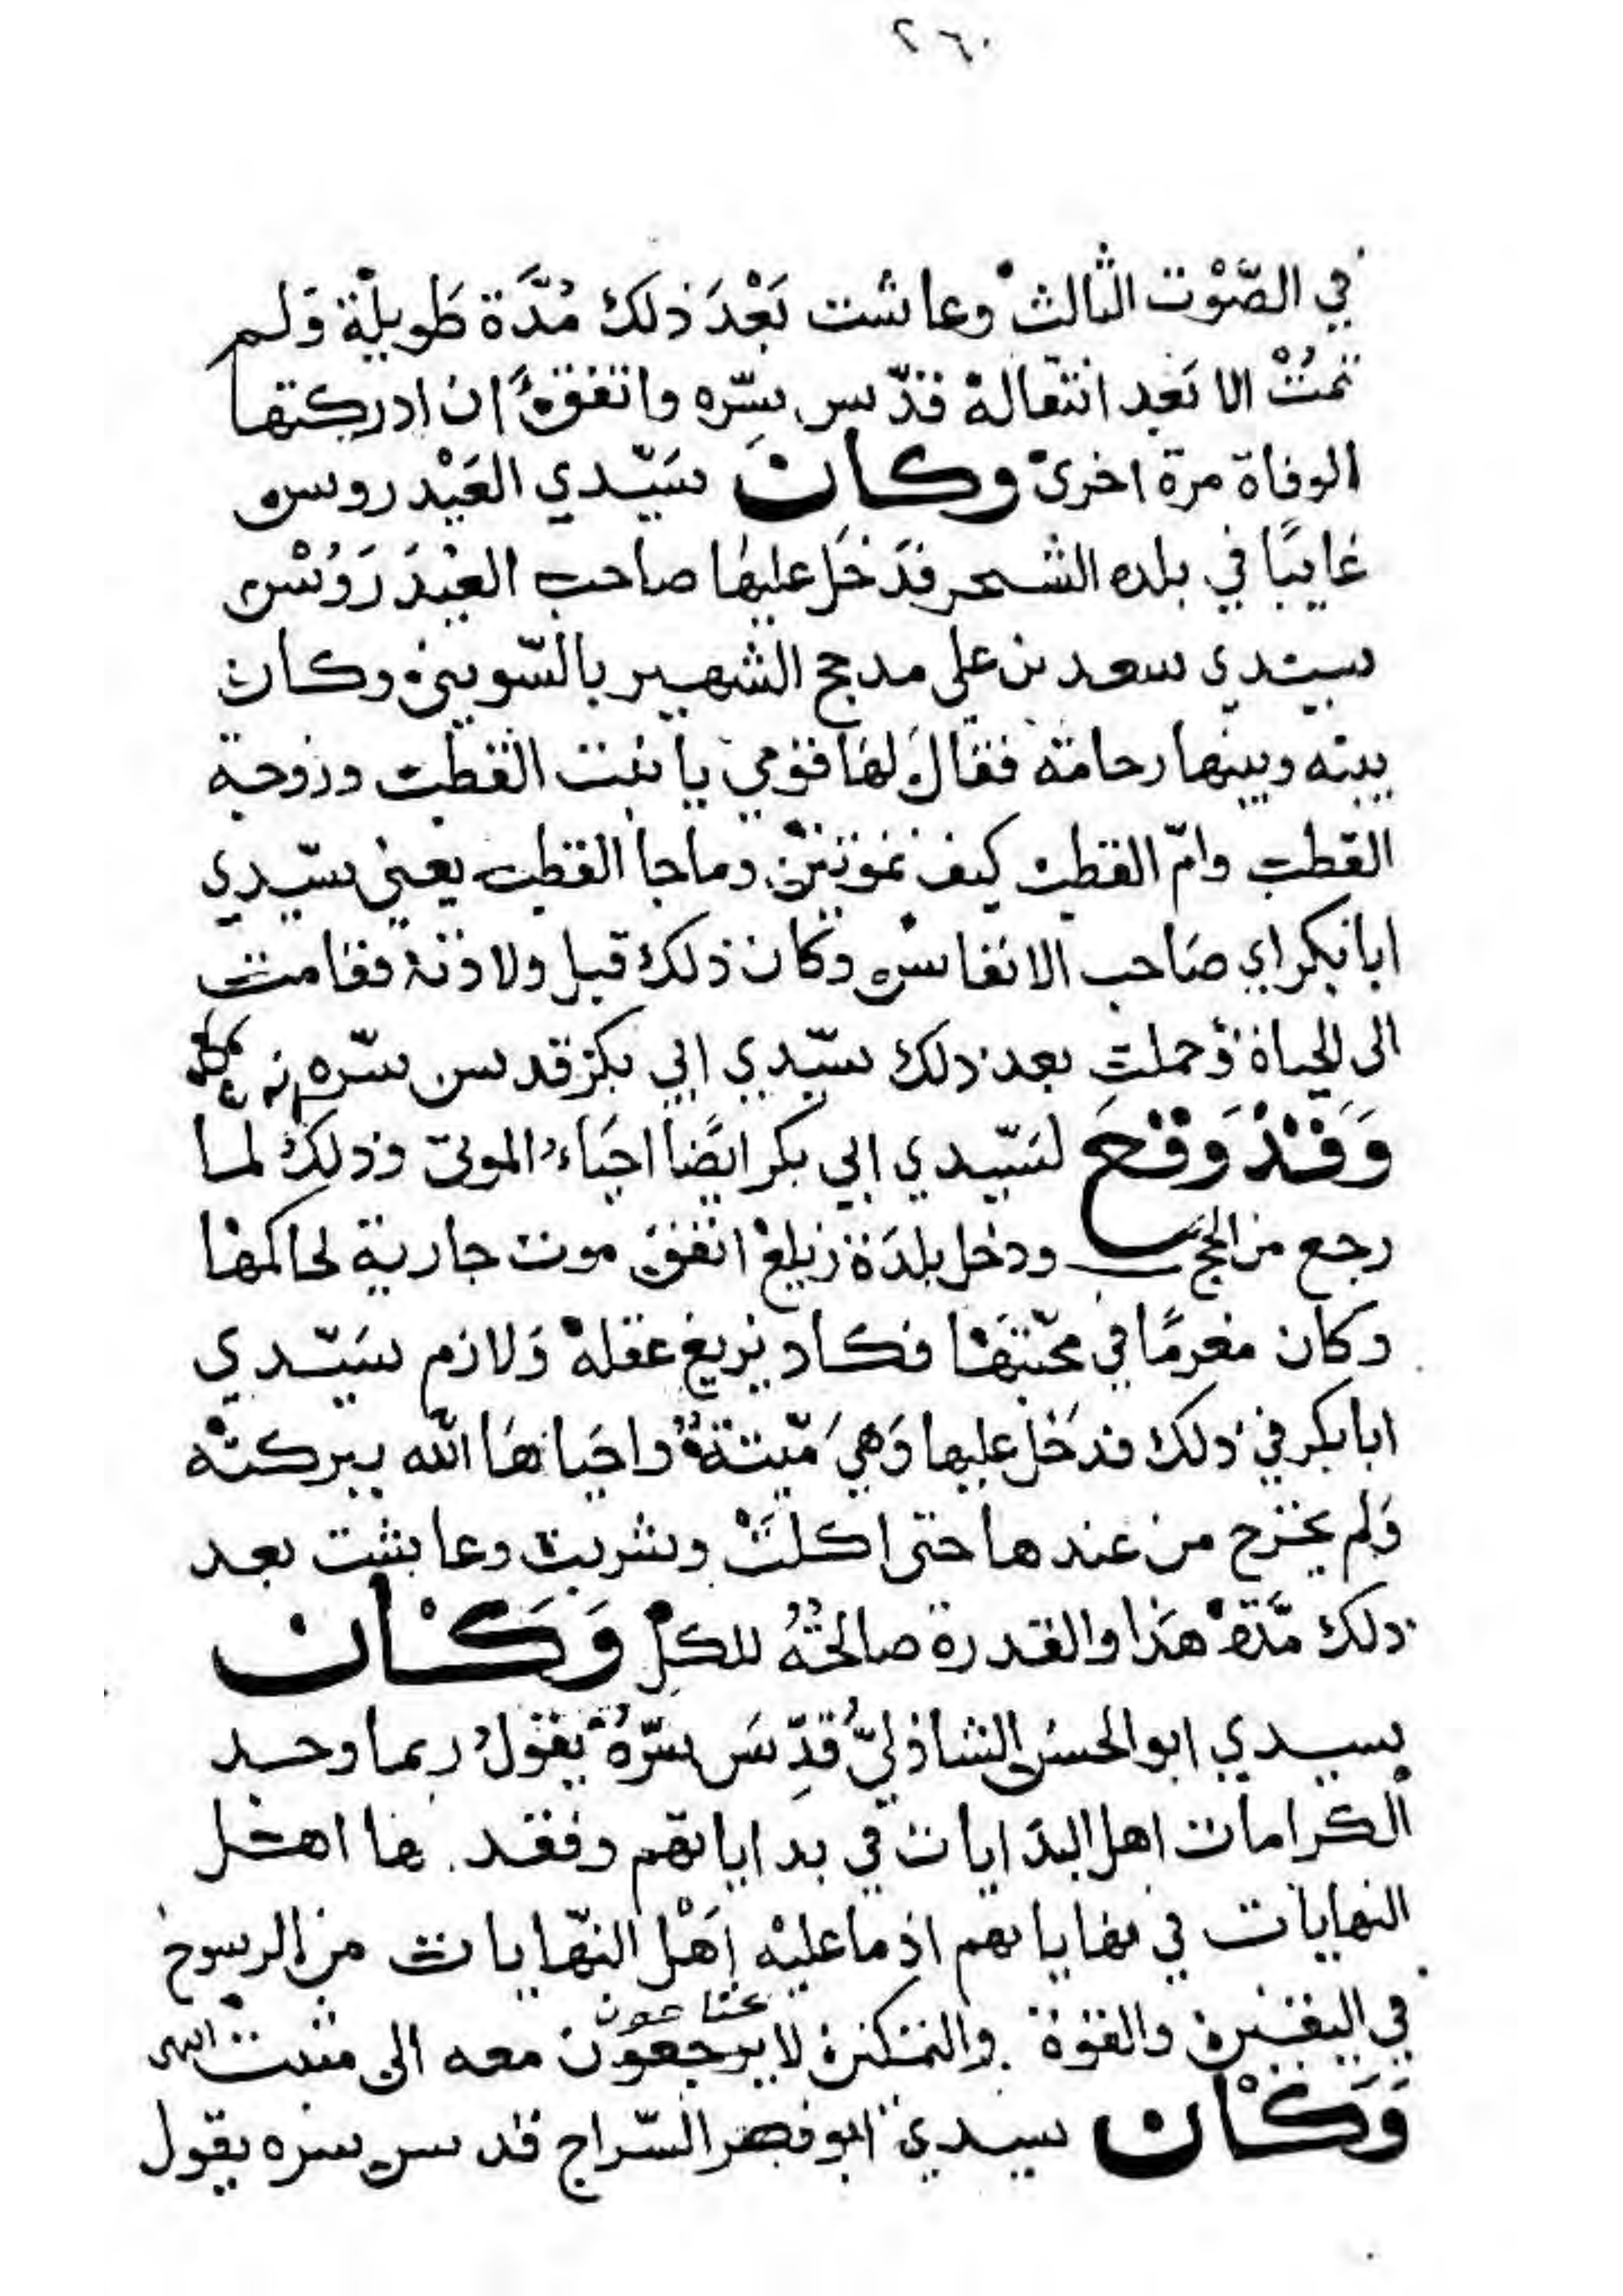 ٢٦٠
في الصَّوْت الثالث وعاشت بَعْدَ ذلك مُدَّة طَويلة وَلم
تمُتْ الا بَعد انتقاله قدّس سّره واتفق ان ادركتها
الوفاة مرة اخرى وكان سَيّدي العَيْدروس
غايبًا في بلده الشحر فدَخَل عليها صاحب العَيْدَرَوُسْ
سيدي سعد بن علي مدحج الشهير بالسّويني وكان
بينه وبينها رحامة فقالَ لهَا قومي يا بنت القطب وزوجة
القطب وامّ القطب كيف تموتين وما جا القطب يعني سيّدي
ابا بكر اي صَاحب الانفاس وكان ذلك قبل ولادته فقامت
الى الحياة وحملت بعد ذلك سيّدي ابي بكر قدس سّره
وَقَدْ وَقعَ لسَيّدي ابي بكر ايضًا احيَاء الموتى وذلك لما
رجع من الحج ودخل بلدَة زيلع اتفق موت جارية لحاكمها
وكان مغرمًا في محبّتهَا فكاد يزيغ عقله وَلازم سَيّدي
ابا بكر في ذلك فدَخل عليها وَهيَ مّيتةُ واحيَاهَا الله ببركته
وَلم يخرج من عندها حتى اكلَتْ وشربت وعاشت بعد
ذلك مّدة هَذا والقدرة صالحةُ للكل وَكَان
سيدي ابو الحسن الشاذليُّ قُدِّسَ سّرُهُ يقولُ ربما وجد
الكرامات اهل البدَايات في بداياتهم وفقدها اهل
النهايات في نهاياتهم اذ ما عليْه اَهْل النّهايات من الرسوخ
في اليقين والقوة والتمكن لا يرجعون معه الى مثبت
يحتاجون
وَكَان سيدي ابو نصر السّراج قدس سره يقول